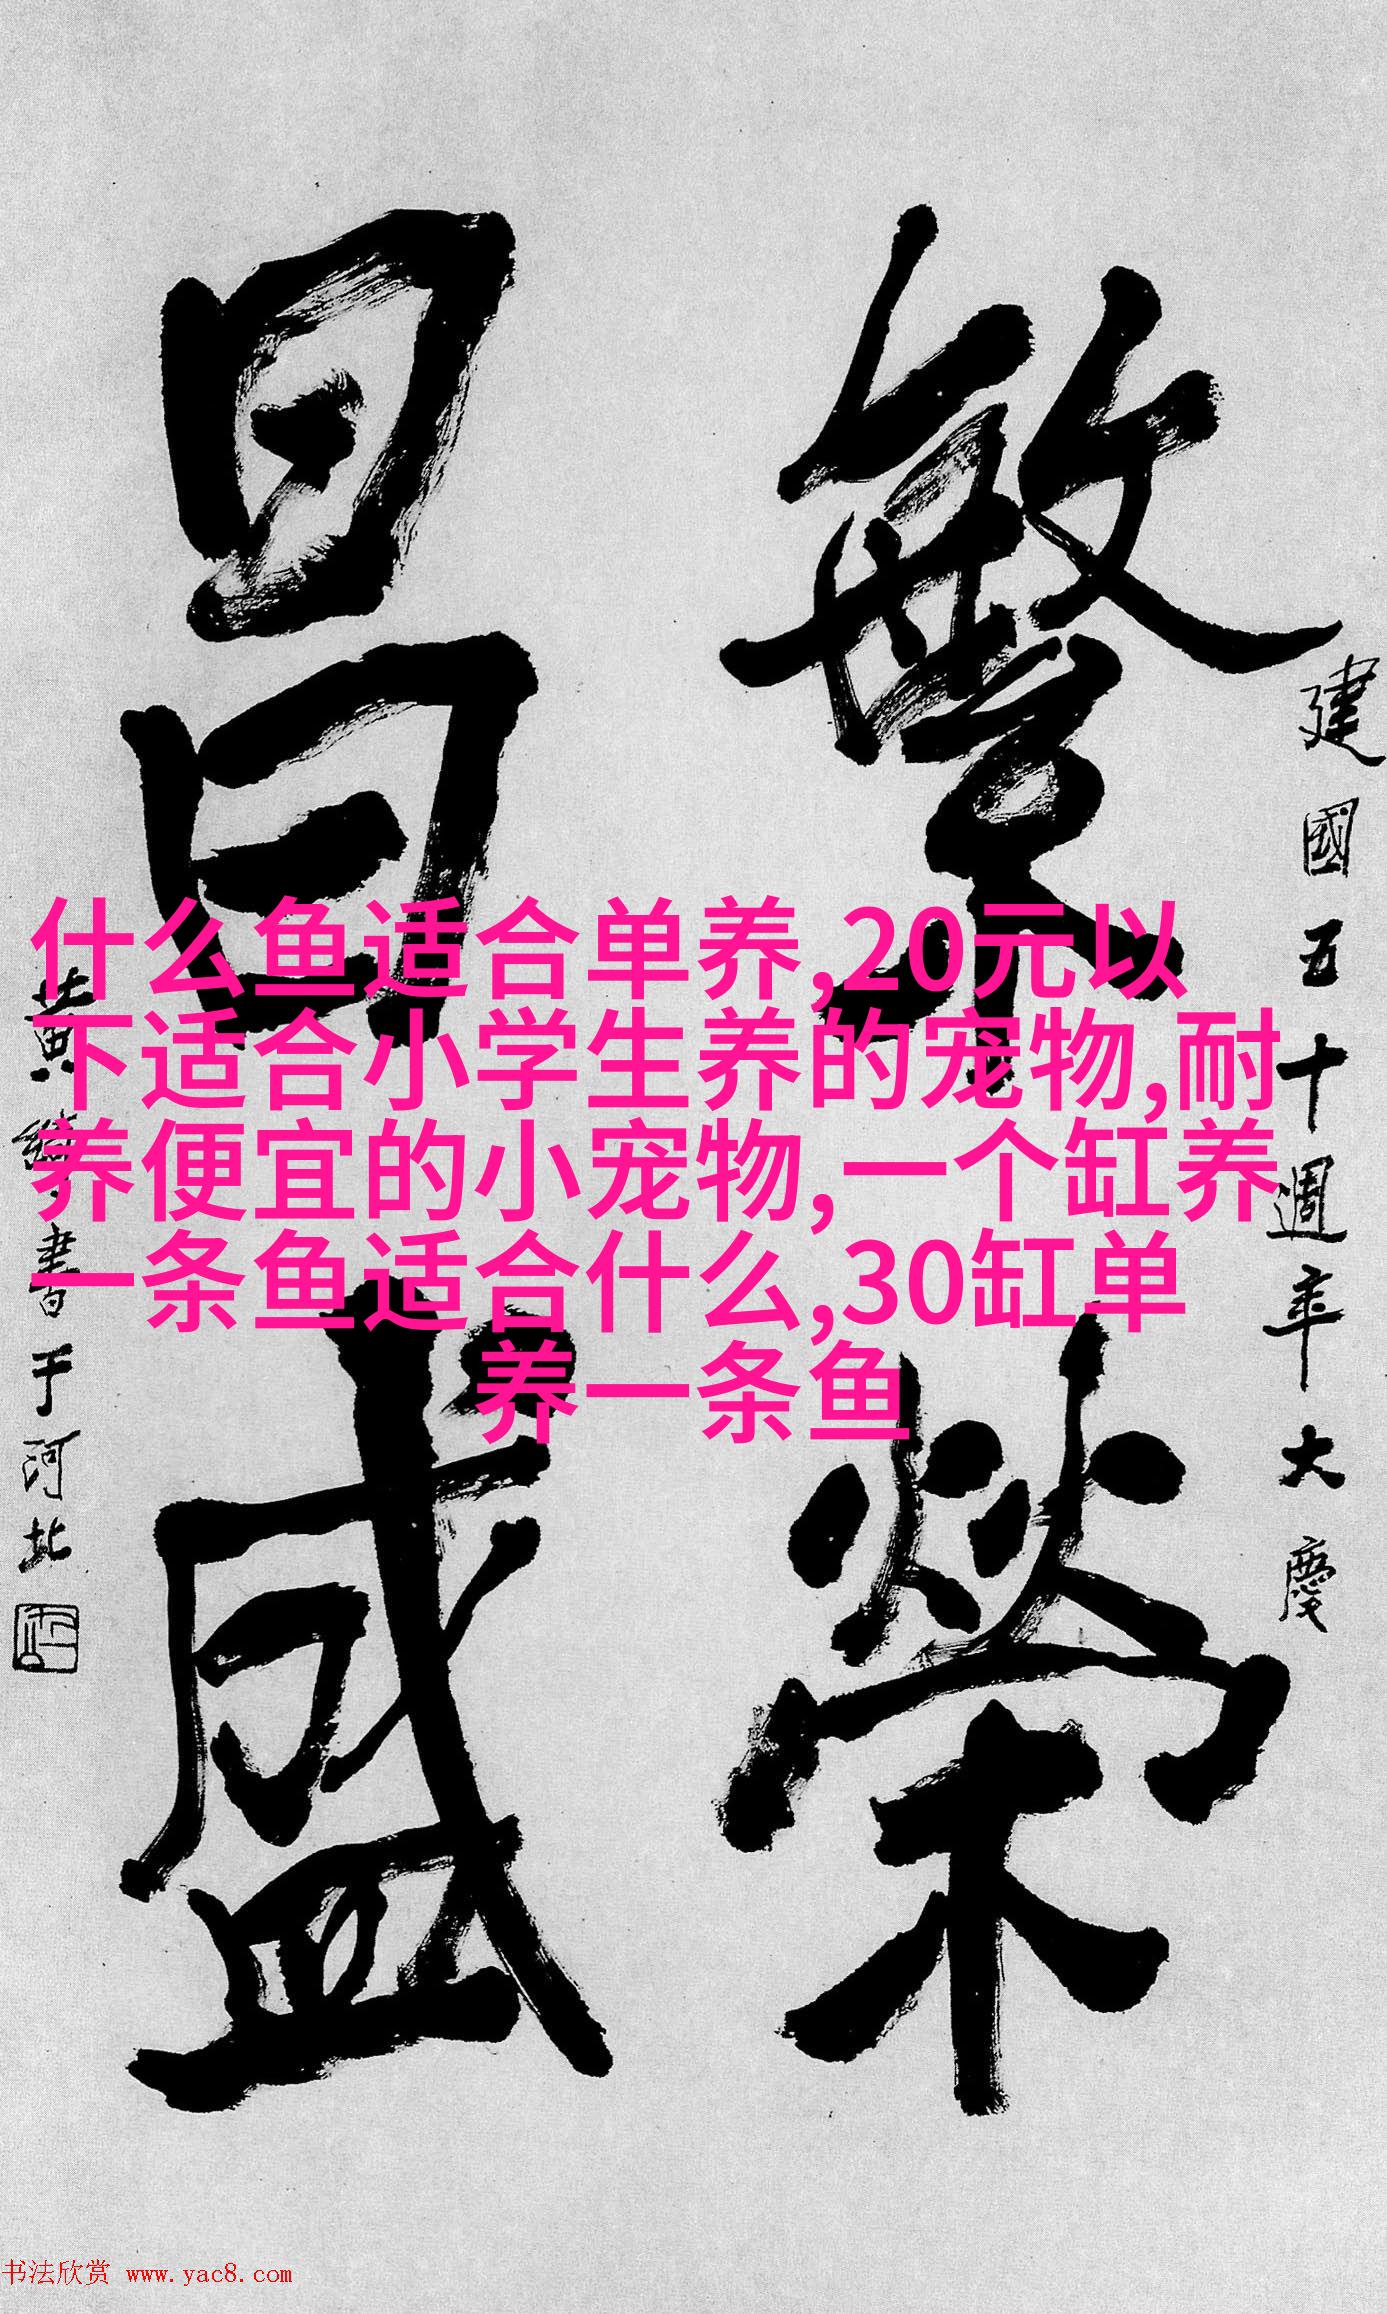 建國五十週年大慶
繁榮
昌盛
黄綺書于河北
什么鱼适合单养,20元以
下适合小学生养的宠物,耐
养便宜的小宠物,一个缸养
一条鱼适合什么,30缸单
养一条鱼
书法欣赏 www.yac8.com